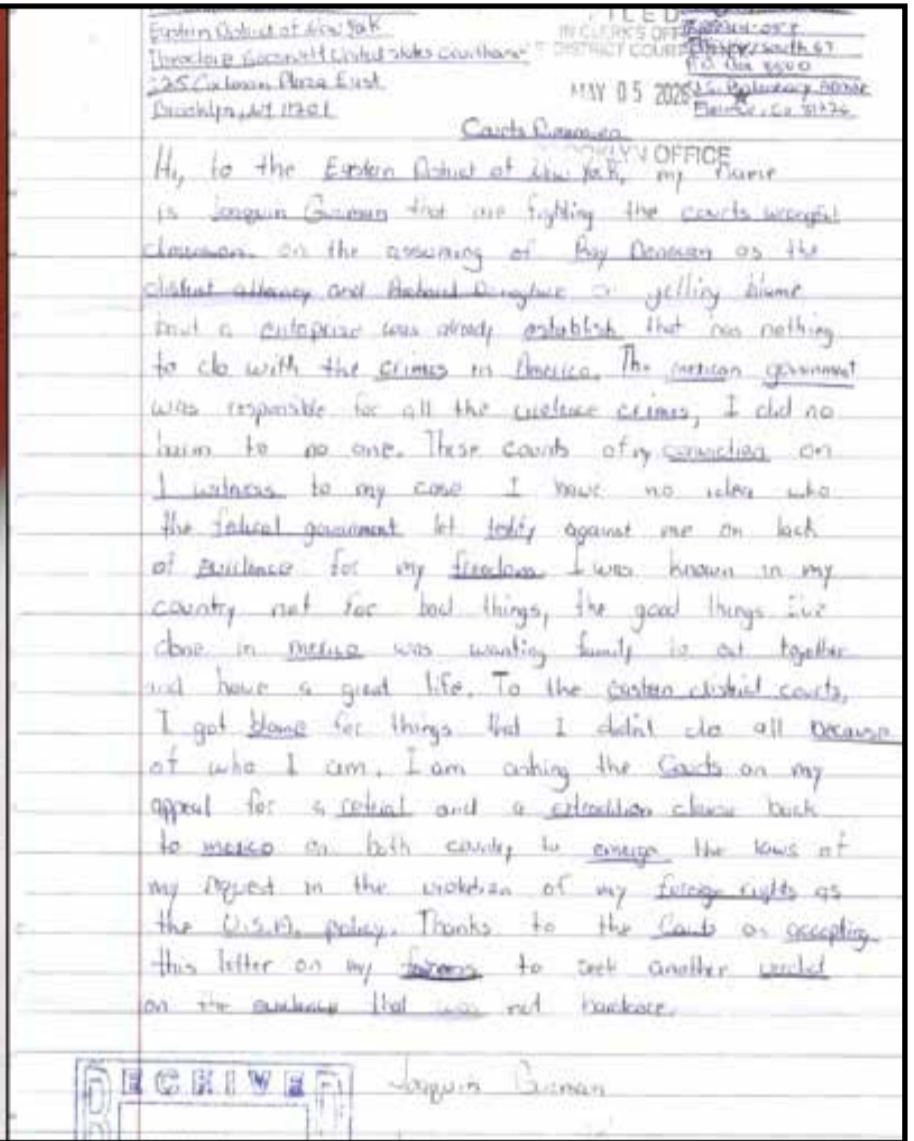 Eastern District of New York
FILED
IN CLERK'S OFFICE
Theodore Roosevelt United States Courthouse
DISTRICT COURT
225 Cadman Plaza East
P.O. Box 8500
MAY 05 2026 ★
Brooklyn, NY 11201
Florence, Co 81226
Courts
BROOKLYN OFFICE
Hi, to the Eastern District of New York, my name
is Joaquin Guzman that are fighting the courts wrongful
on the assuming of Ray Donovan as the
district attorney and Richard Donoghue yelling blame
but a enterprise was already establish that has nothing
to do with the crimes in America. The mexican government
was responsible for all the violence crimes, I did no
harm to no one. These counts of my conviction on
I witness to my case I have no idea who
the federal government let testify against me on lack
of evidence for my freedom I was known in my
country not for bad things, the good things I've
done in mexico was wanting family to eat together
and have a great life. To the eastern district courts,
I got blame for things that I didn't do all because
of who I am. I am asking the Courts on my
appeal for a retrial and a extradition clause back
to mexico on both country to emerge the laws of
my request in the violation of my foreign rights as
the U.S.A. policy. Thanks to the Courts on accepting
this letter on my to seek another verdict
on the evidence that was not hardcore.
RECEIVED
Joaquin Guzman